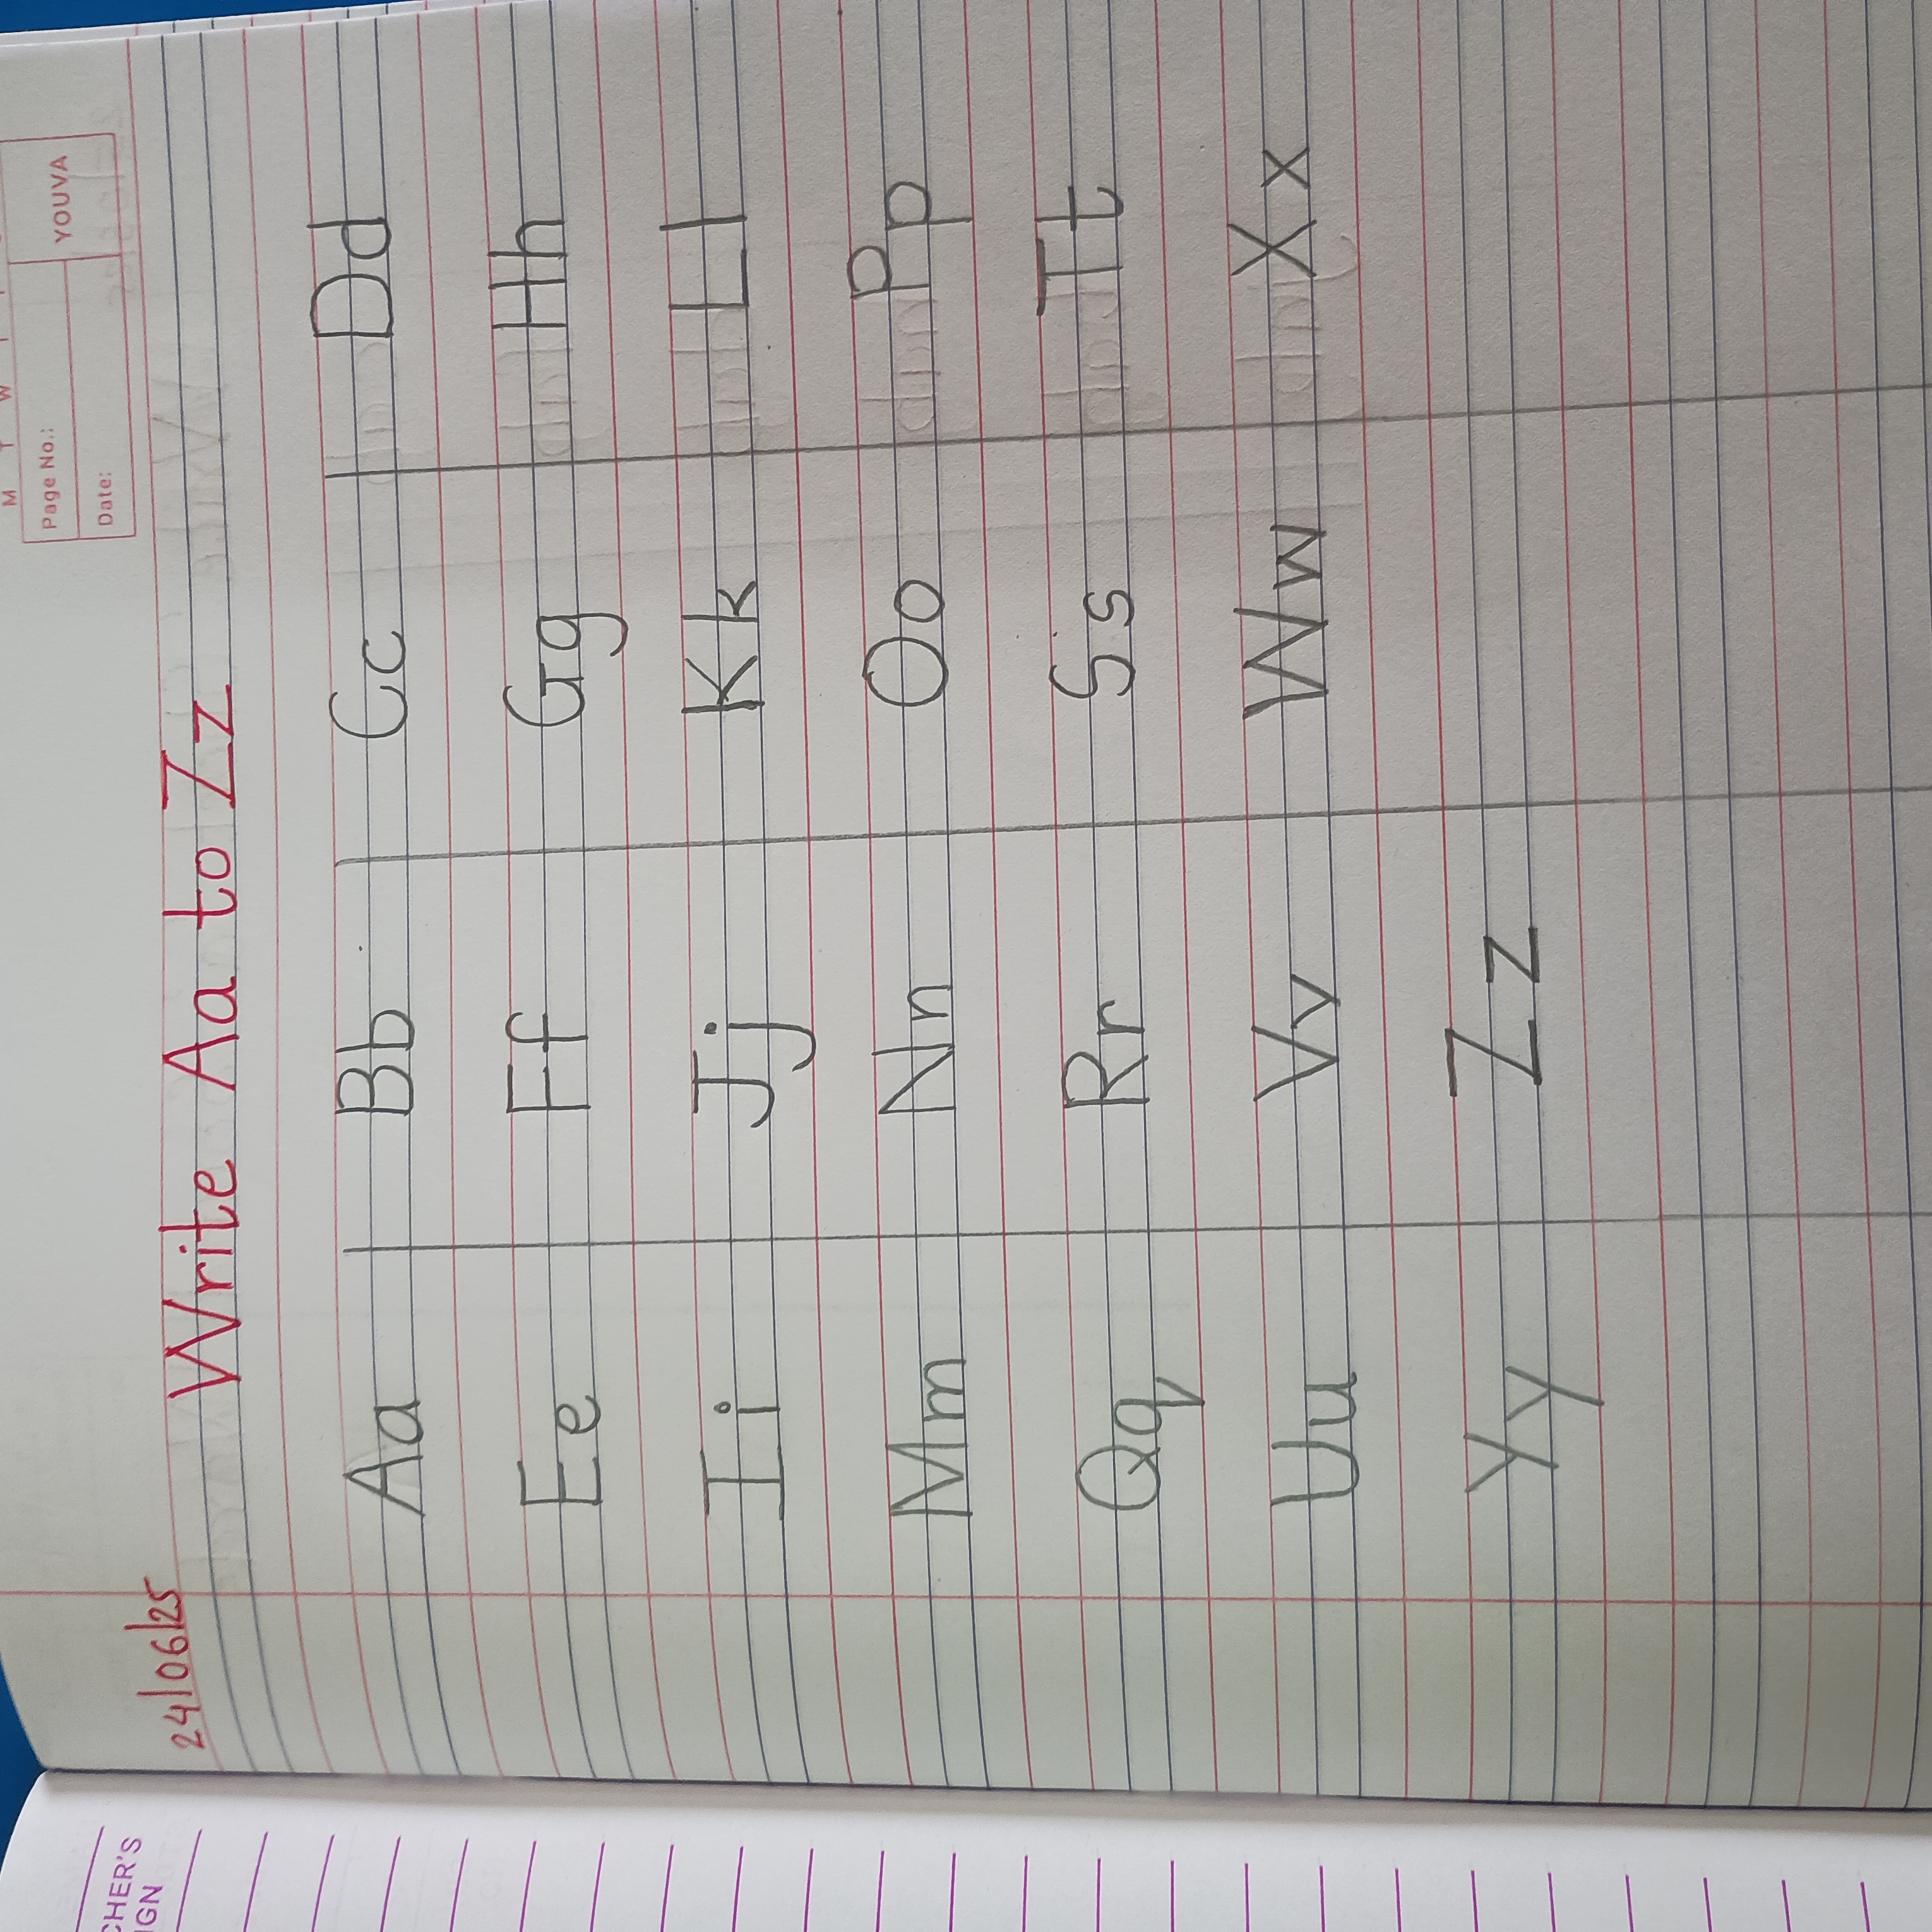 M T W T
Page No.:
Date:
YOUVA
24/06/25
Write Aa to Zz
Aa Bb Cc Dd
Ee Ff Gg Hh
Ii Jj Kk Ll
Mm Nn Oo Pp
Qq Rr Ss Tt
Uu Vv Ww Xx
Yy Zz
CHER'S
IGN